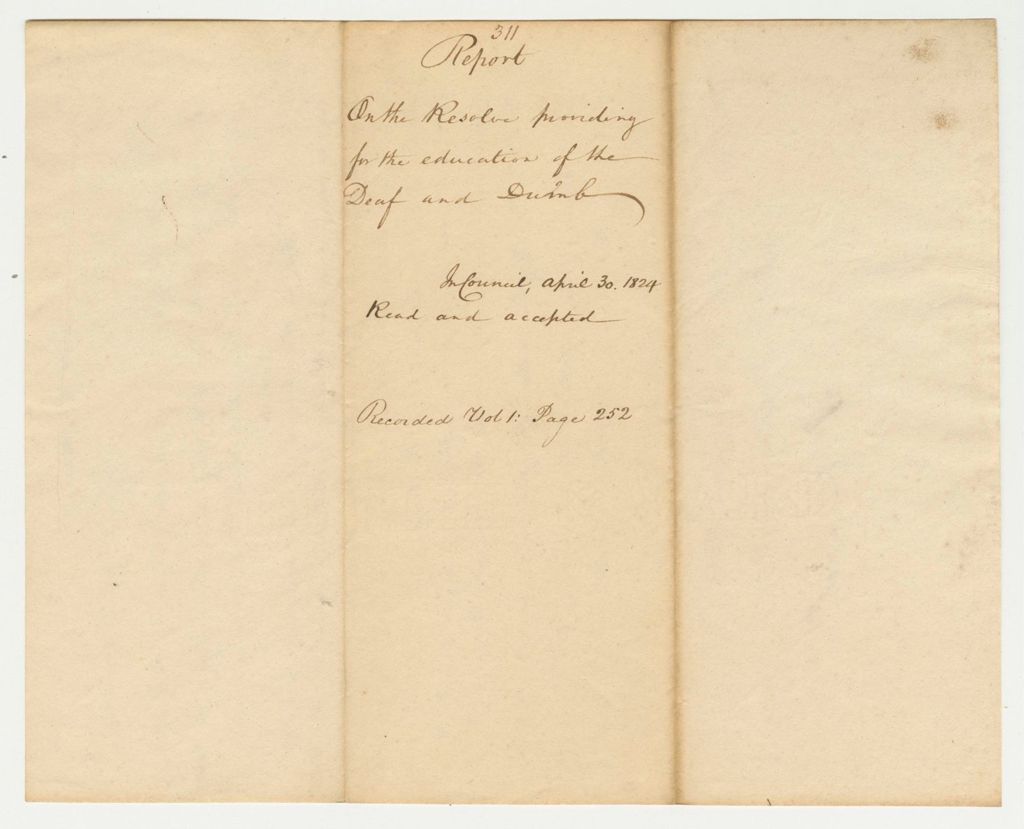 311
Report
On the Resolve providing
for the education of the
Deaf and Dumb
In Council, April 30. 1824
Read and accepted
Recorded Vol 1: Page 252